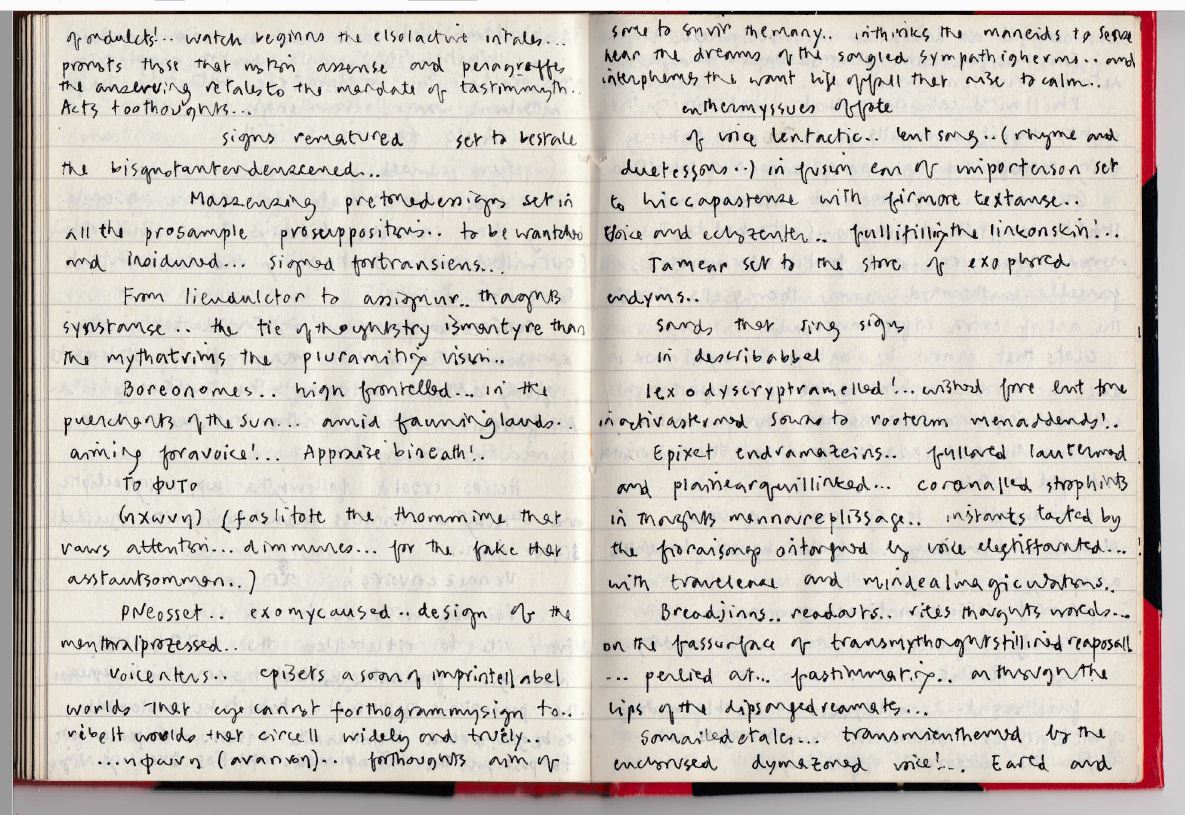 watch beginns the elsolactive intales...
prompts those that motion assense and peragraffes
the anserving retales to the mandate of tastimmyth..
Acts toothoughts...
signs rematured set to bestale
the
pretonedessigns set in
all the prosample prosuppositions.. to be wanted
and insidured... signed fortransiens...
From liendulctor to assignur.. thoughts
syststanse... the tie of thoughtstry ismantyre than
the mythatrims the pluramity vision..
Boreonomes.. high frontelled... in the
puenchants of the sun... amid fauninglands..
aiming foravoice!... Appraize bineath!..
ΤΟ ΦUΤΟ
(ηχωνη) (faslitote the thommime that
vaws attention... dimmunes... for the fake that
asstautsommen..)
PNeosset.. exomycaused.. design of the
menthralprozessed..
Voicenters... epizets a soan of imprintellabel
worlds that eye cannot forthogrammysign to..
vibelt worlds that circell widely and truely...
...ηφωνη (αναπνοη).. forthoughts aim of
some to survir themany.. inthinks the maneids to sense
hear the dreams of the songled sympathigherms.. and
interphemes the want life offall that arise to calm..
enthermyssues offate
of voice lentactic.. lentsong..(rhyme and
duetessons..) in fusion can of umiportenson set
to hiccapastense with firmore textanse..
Voice and echyzenter.. fullifilling the linkonskin!...
Tamear set to the store of exophored
endyms..
Sands that sing signs
in describabbel
lexodyscryptramelled!... wished fore ent tone
inactivastermed Sowns to rooterm menaddends!..
Epixet endramazeins... fullored lautermed
and plainearquillinked... coronalled strophints
in thoughts mennaureplissage.. instants tacted by
the fioraisongs by voice
with travelense and mindealmagiculations..
Breadjinns.. readouts.. rites thoughts words...
on the fassurface of transmythoughtstillined reaposall
... perlied at... fastimmatrix.. onthrough the
lips of the dipsongedreamates...
Somailedetales... transmienthemed by the
enchorused dymazoned voice!... Eared and